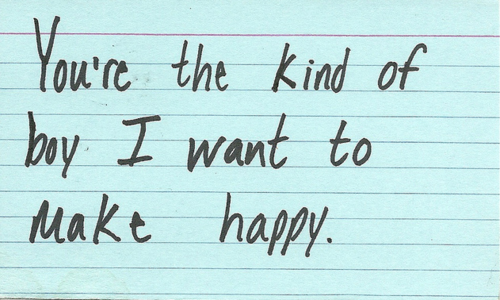 You're the kind of
boy I want to
make happy.